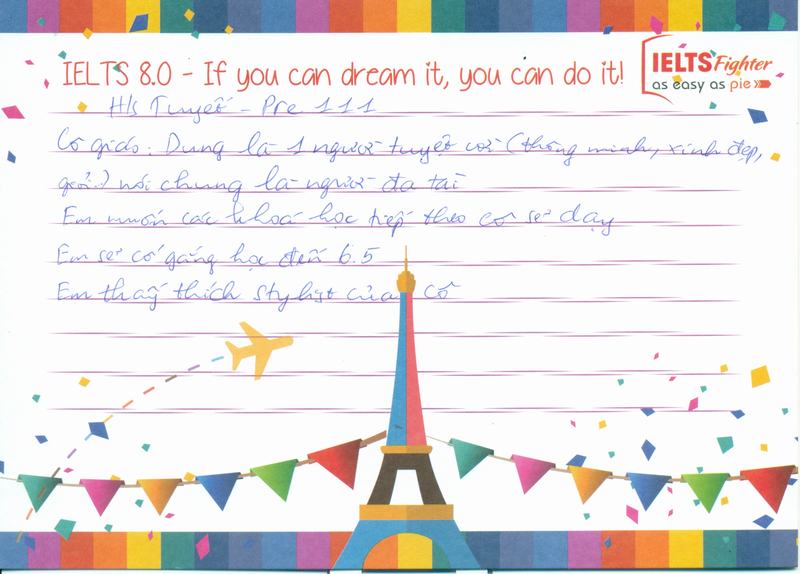 IELTS 8.0 - If you can dream it, you can do it!
IELTS Fighter
as easy as pie
H/s Tuyết - Pre 111
Cô giáo: Dung là 1 người tuyệt vời (thông minh, xinh đẹp,
giỏi..) nói chung là người đa tài
Em muốn các khoá học tiếp theo cô sẽ dạy
Em sẽ cố gắng học đến 6.5
Em thấy thích stylist của cô